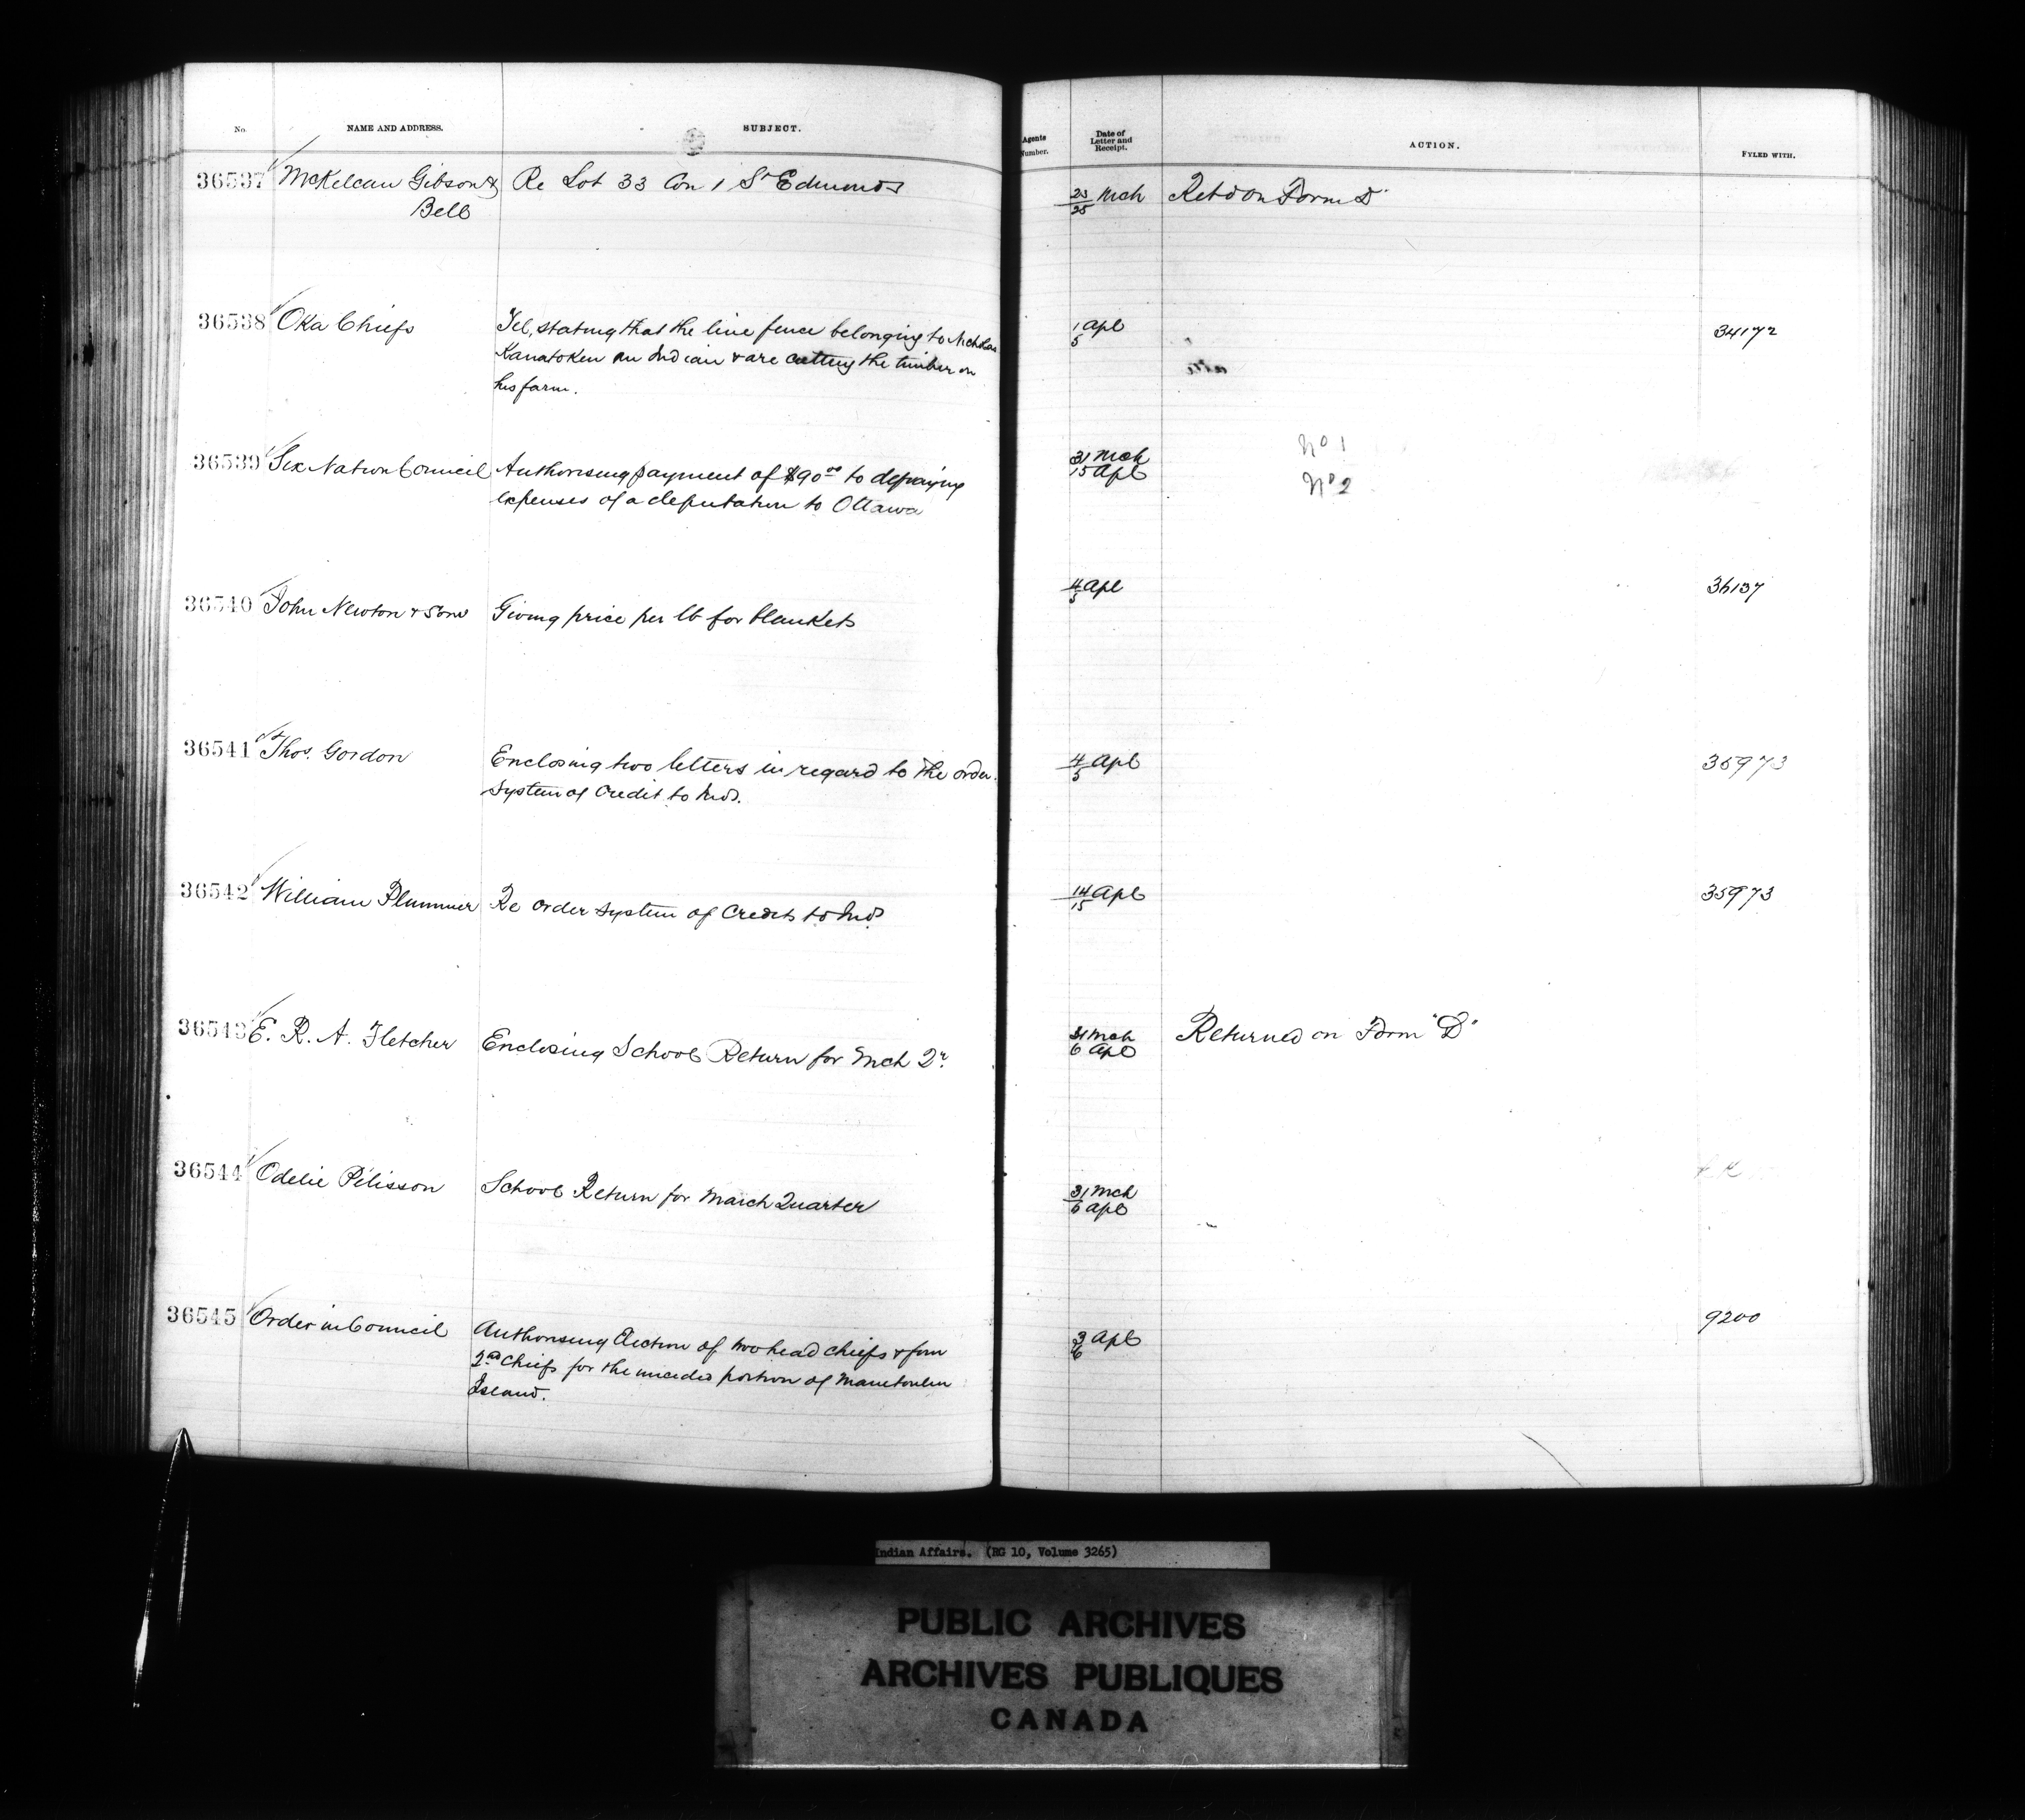 No. NAME AND ADDRESS. SUBJECT. Agents Number. Date of Letter and Receipt. ACTION. FYLED WITH.
36537 McKelcan Gibson & Re Lot 33 Con 1 St Edmonds 23 Mch Retd on Form D
Bell 25
36538 Oka Chiefs Tel, stating that the line fence belonging to Nicholas 1 Apl 34172
Kanatoken an Indian & are cutting the timber on 5
his farm.
36539 Six Nation Council Authorising payment of $90.00 to defraying 31 Mch No 1
expenses of a deputation to Ottawa 15 Apl No 2
36540 John Newton & Sons Giving price per lb for blankets 4 Apl 36137
5
36541 Thos. Gordon Enclosing two letters in regard to the order 4 Apl 35973
System of Credit to Inds. 5
36542 William Plummer Re order system of Credits to Inds 14 Apl 35973
15
36543 E. R. A. Fletcher Enclosing School Return for Mch Qr. 31 Mch Returned on Form "D"
6 Apl
36544 Odelie Pélisson School Return for March Quarter 31 Mch
6 Apl
36545 Order in Council Authorising Election of two head chiefs & four 3 Apl 9200
2nd Chiefs for the unceded portion of Manetoulin 6
Island.
Indian Affairs. (RG 10, Volume 3265)
PUBLIC ARCHIVES
ARCHIVES PUBLIQUES
CANADA